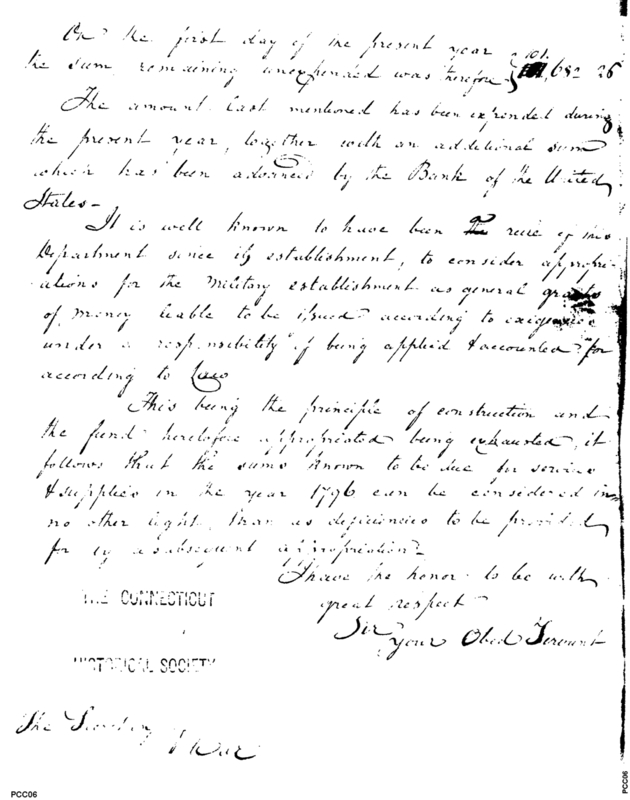 On the first day of the present year
the sum remaining unexpended was therefore } 101,682 26
The amount last mentioned has been expended during
the present year, together with an additional sum
which has been advanced by the Bank of the United
States—
It is well known to have been the rule of this
Department since its establishment, to consider appropri-
ations for the Military establishment as general grants
of money liable to be issued according to exigencies
under a responsibility of being applied & accounted for
according to Law
This being the principle of construction and
the fund heretofore appropriated being exhausted, it
follows that the sums known to be due for services
& supplies in the year 1796 can be considered in
no other light, than as deficiencies to be provided
for by a subsequent appropriation—
I have the honor to be with
great respect
Sir
your Obed Servant
THE CONNECTICUT
HISTORICAL SOCIETY
The Secretary
of War
PCC06
PCC06